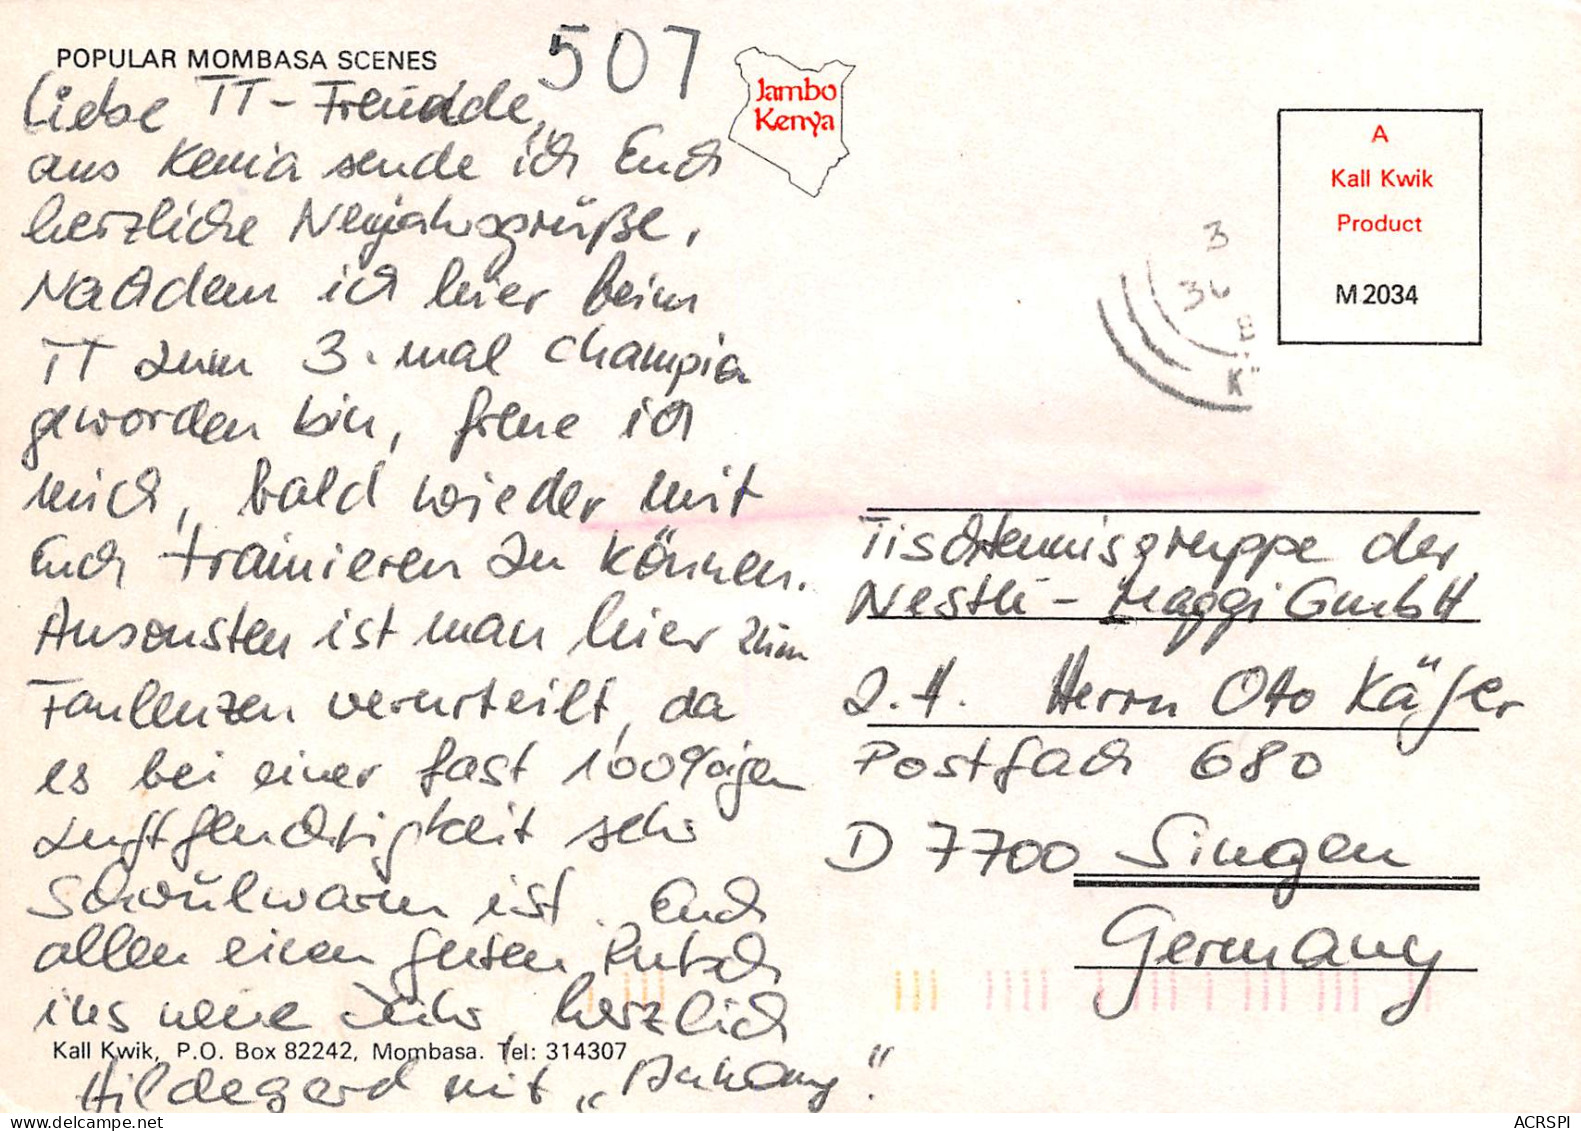 POPULAR MOMBASA SCENES
507
Jambo
Kenya
Liebe TT-Freunde,
aus Kenia sende ich Euch
herzliche Neujahrsgrüße.
Nachdem ich hier beim
TT zum 3. mal Champia
geworden bin, freue ich
mich, bald wieder mit
Euch trainieren zu können.
Ansonsten ist man hier zum
Faulenzen verurteilt, da
es bei einer fast 100%igen
Luftfeuchtigkeit sehr
Schwülwarm ist. Euch
allen einen guten Rutsch
ins neue Jahr, herzlich
Hildegard mit „Anhang".
Kall Kwik, P.O. Box 82242, Mombasa. Tel: 314307
A
Kall Kwik
Product
M2034
Tischtennisgruppe der
Nestlé-Maggi GmbH
z.H. Herrn Otto Käfer
Postfach 680
D 7700 Singen
Germany
ACRSPI